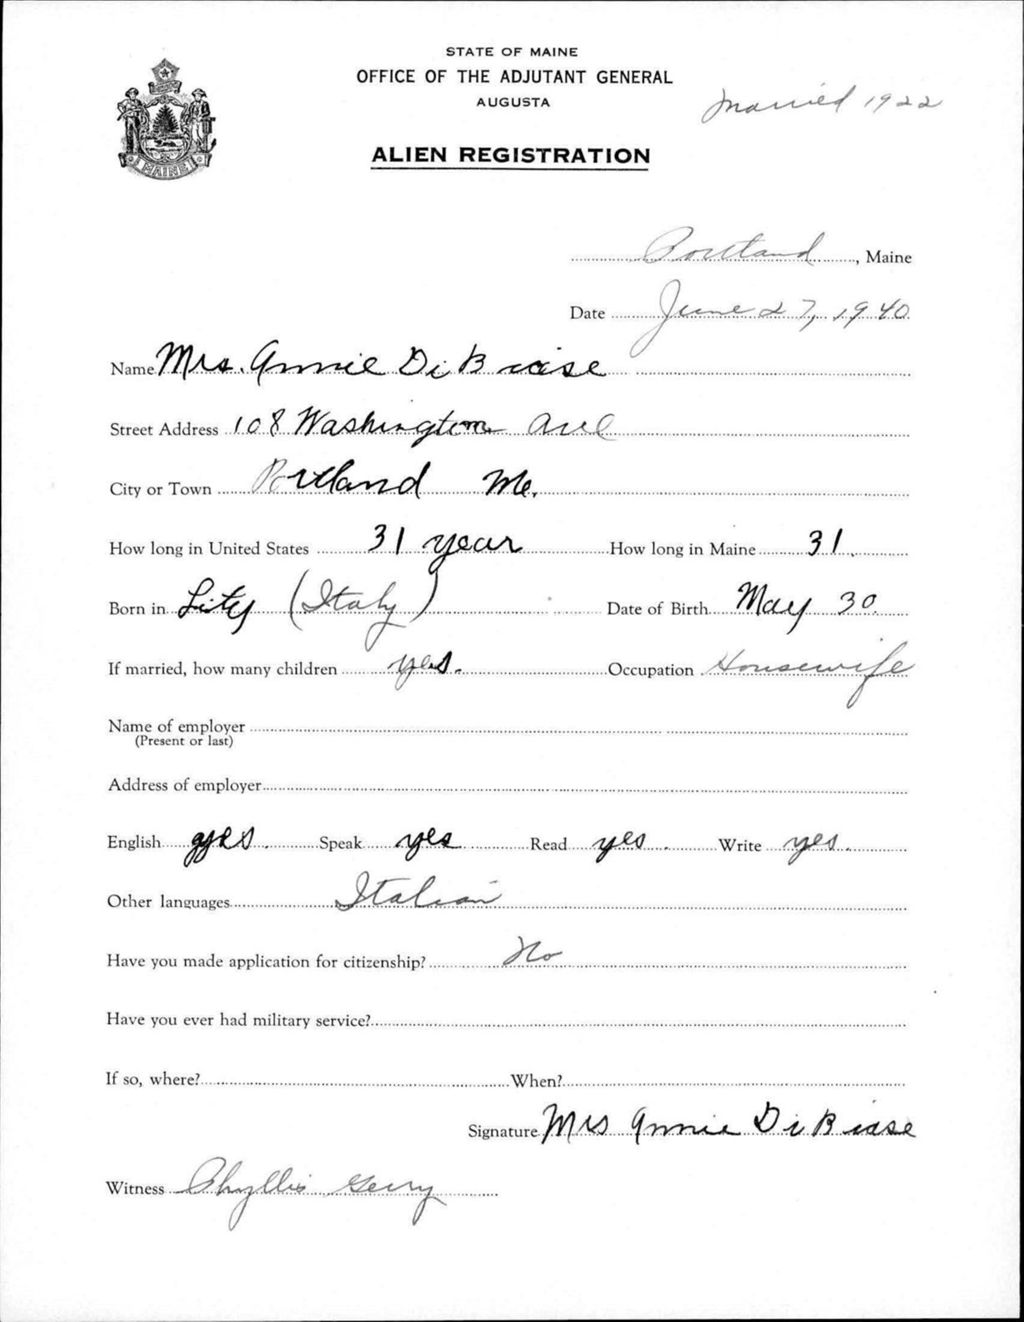 STATE OF MAINE
OFFICE OF THE ADJUTANT GENERAL
AUGUSTA
Married 1922
ALIEN REGISTRATION
MAINE
Portland, Maine
Date June 27, 1940
Name Mrs. Annie DiBiase
Street Address 108 Washington Ave
City or Town Portland Me.
How long in United States 31 year How long in Maine 31.
Born in (Italy) Date of Birth May 30
If married, how many children yes. Occupation Housewife
Name of employer
(Present or last)
Address of employer
English yes. Speak yes Read yes. Write yes.
Other languages Italian
Have you made application for citizenship? No
Have you ever had military service?
If so, where? When?
Signature Mrs Annie DiBiase
Witness Phyllis Gerry